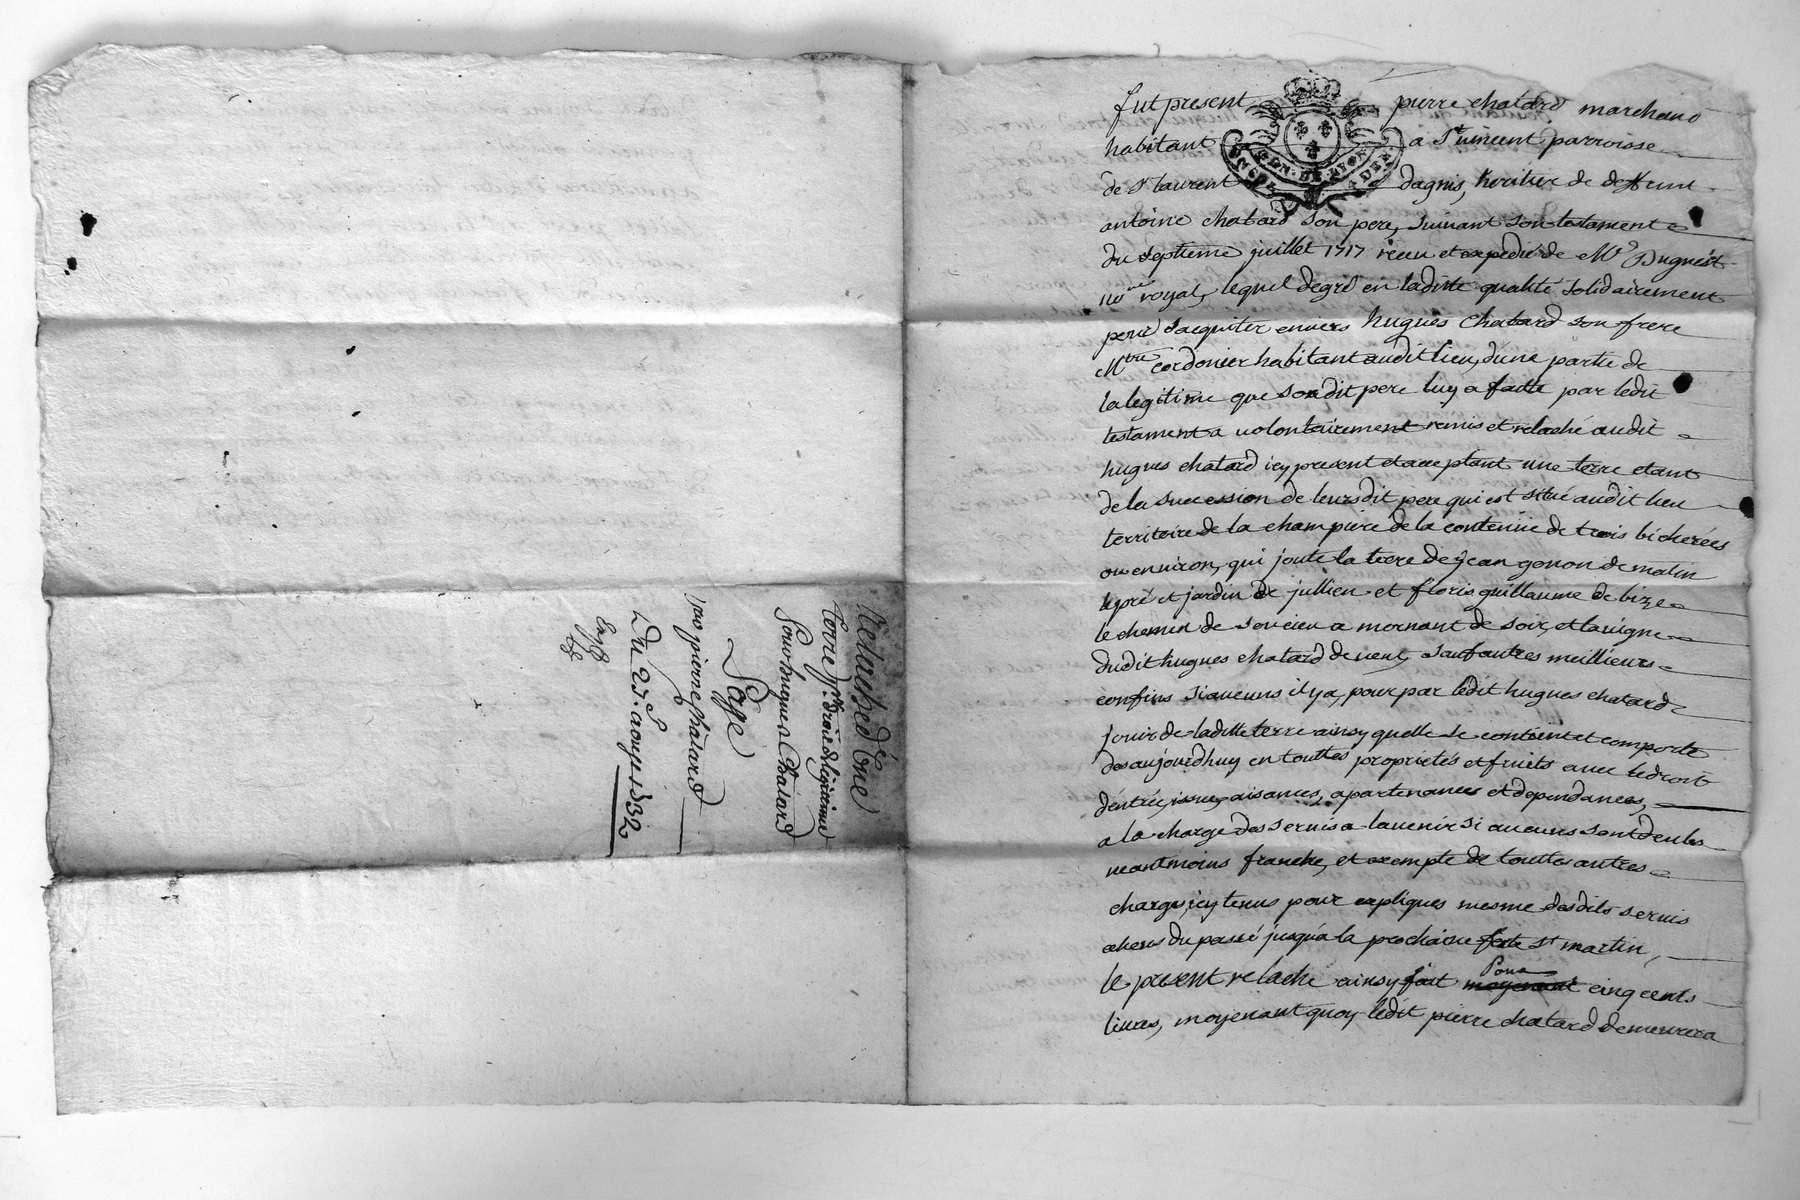 Relasche d'Une
Terre pr. droit de legitime
Pour hugues Chatard
Sage
pierre Chatard
Du 25.e aoust 1732
fut present pierre chatard marchand
habitant a St vincent parroisse
de St laurent dagnis, heritier de deffunt
antoine chatard son pere, suivant son testament
du septieme juillet 1717 receu et expedié de Me Dugniest
nore royal, lequel degré en ladite qualité solidairement
pour s'acquiter envers hugues Chatard son frere
Mtre cordonier habitant audit lieu, dune partie de
la legitime que sondit pere luy a faitte par ledit
testament a volontairement remis et relaché audit
hugues chatard icy present et acceptant une terre etant
de la succession de leursdit pere qui est situé audit lieu
territoire de la champiere de la contenue de trois bicherées
ou environ, qui joute la terre de jean gonon de matin
le pré et jardin de jullien et floris guillaume de bize
le chemin de soucieu a mornant de soir, et la vigne
dudit hugues chatard de vent, sauf autres meillieurs
confins si aucuns il y a, pour par ledit hugues chatard
jouir de laditte terre ainsy quelle se contient et comporte
des aujourdhuy en touttes proprietés et fruits avec le droit
dentrée, issue, aisances, apartenances et dependances,
a la charge des servis a lavenir si aucuns sont deubs
neantmoins franche, et exempte de touttes autres
charges, icy tenus pour expliqués mesme desdits servis
echeus du passé jusqu'a la prochaine feste st martin,
le present relache ainsy fait moyenant Pour cinq cents
livres, moyenant quoy ledit pierre chatard demeurera